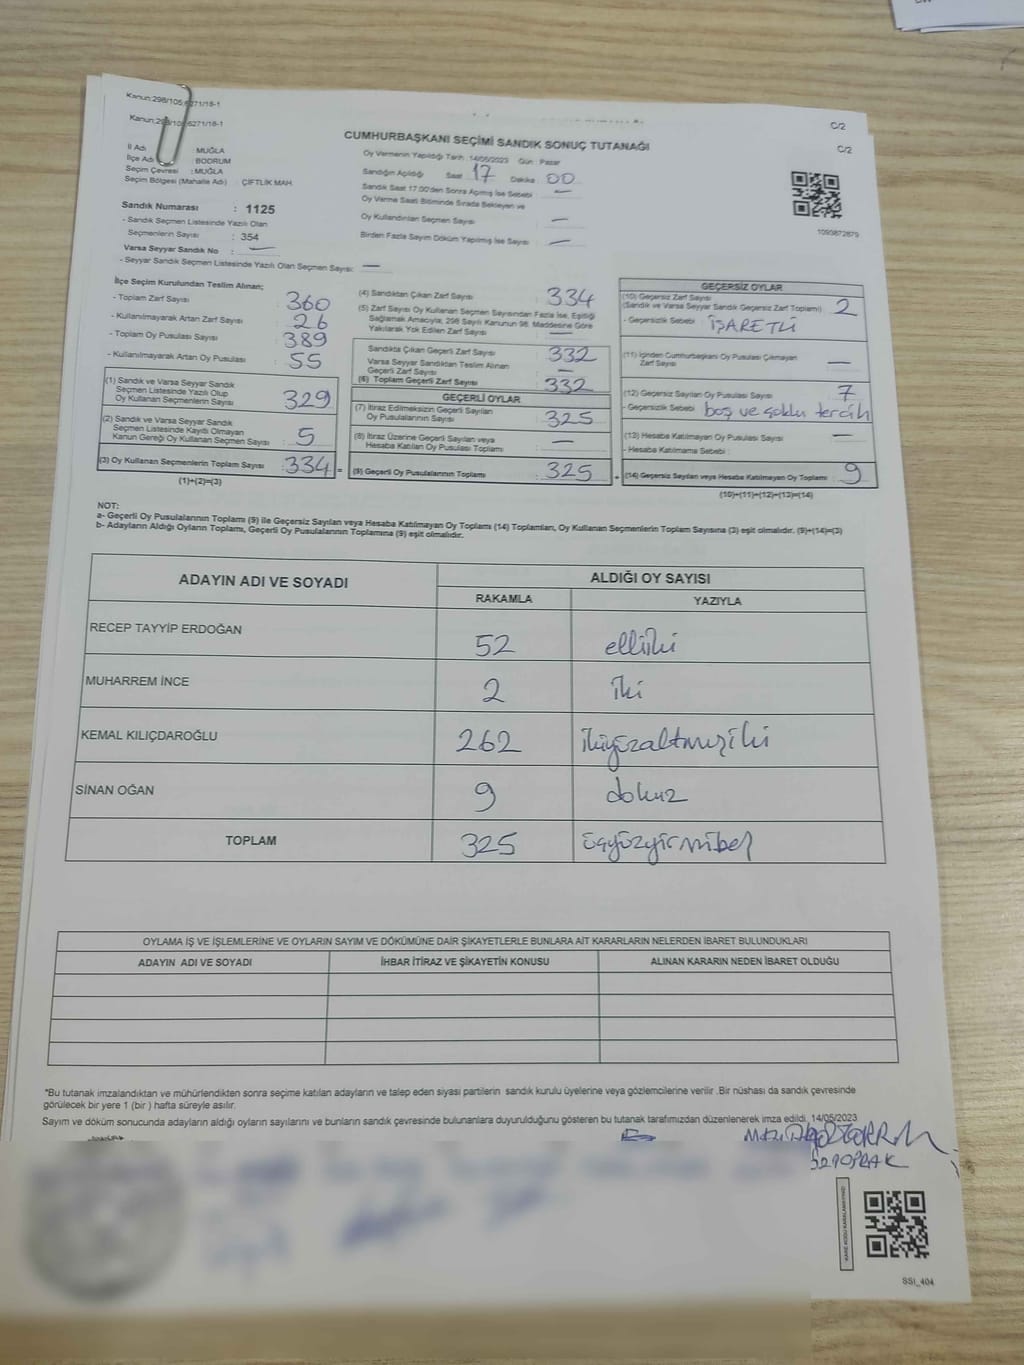 Kanun:298/105;6271/18-1
Kanun:298/105;6271/18-1
C/2
C/2
CUMHURBAŞKANI SEÇİMİ SANDIK SONUÇ TUTANAĞI
İl Adı : MUĞLA
İlçe Adı : BODRUM
Seçim Çevresi : MUĞLA
Seçim Bölgesi (Mahalle Adı) : ÇİFTLİK MAH.
Sandık Numarası : 1125
- Sandık Seçmen Listesinde Yazılı Olan
Seçmenlerin Sayısı : 354
Varsa Seyyar Sandık No : —
- Seyyar Sandık Seçmen Listesinde Yazılı Olan Seçmen Sayısı: —
Oy Vermenin Yapıldığı Tarih : 14/05/2023 Gün : Pazar
Sandığın Açıldığı Saat : 17 Dakika : 00
Sandık Saat 17.00'den Sonra Açılmış İse Sebebi : —
Oy Verme Saati Bitiminde Sırada Bekleyen ve
Oy Kullandırılan Seçmen Sayısı : —
Birden Fazla Sayım Döküm Yapılmış İse Sayısı : —
1093872879
İlçe Seçim Kurulundan Teslim Alınan;
- Toplam Zarf Sayısı : 360
- Kullanılmayarak Artan Zarf Sayısı : 26
- Toplam Oy Pusulası Sayısı : 389
- Kullanılmayarak Artan Oy Pusulası : 55
(1) Sandık ve Varsa Seyyar Sandık
Seçmen Listesinde Yazılı Olup
Oy Kullanan Seçmenlerin Sayısı : 329
(2) Sandık ve Varsa Seyyar Sandık
Seçmen Listesinde Kayıtlı Olmayan
Kanun Gereği Oy Kullanan Seçmen Sayısı : 5
(3) Oy Kullanan Seçmenlerin Toplam Sayısı : 334 =
(1)+(2)=(3)
(4) Sandıktan Çıkan Zarf Sayısı : 334
(5) Zarf Sayısı Oy Kullanan Seçmen Sayısından Fazla İse, Eşitliği
Sağlamak Amacıyla, 298 Sayılı Kanunun 98. Maddesine Göre
Yakılarak Yok Edilen Zarf Sayısı : —
Sandıkta Çıkan Geçerli Zarf Sayısı : 332
Varsa Seyyar Sandıktan Teslim Alınan
Geçerli Zarf Sayısı : —
(6) Toplam Geçerli Zarf Sayısı : 332
GEÇERLİ OYLAR
(7) İtiraz Edilmeksizin Geçerli Sayılan
Oy Pusulalarının Sayısı : 325
(8) İtiraz Üzerine Geçerli Sayılan veya
Hesaba Katılan Oy Pusulası Toplamı : —
(9) Geçerli Oy Pusulalarının Toplamı : 325 +
GEÇERSİZ OYLAR
(10) Geçersiz Zarf Sayısı
(Sandık ve Varsa Seyyar Sandık Geçersiz Zarf Toplamı) : 2
- Geçersizlik Sebebi : İŞARETLİ
(11) İçinden Cumhurbaşkanı Oy Pusulası Çıkmayan
Zarf Sayısı : —
(12) Geçersiz Sayılan Oy Pusulası Sayısı : 7
- Geçersizlik Sebebi : boş ve çoklu tercih
(13) Hesaba Katılmayan Oy Pusulası Sayısı : —
- Hesaba Katılmama Sebebi :
(14) Geçersiz Sayılan veya Hesaba Katılmayan Oy Toplamı : 9
(10)+(11)+(12)+(13)=(14)
NOT:
a- Geçerli Oy Pusulalarının Toplamı (9) ile Geçersiz Sayılan veya Hesaba Katılmayan Oy Toplamı (14) Toplamları, Oy Kullanan Seçmenlerin Toplam Sayısına (3) eşit olmalıdır. (9)+(14)=(3)
b- Adayların Aldığı Oyların Toplamı, Geçerli Oy Pusulalarının Toplamına (9) eşit olmalıdır.
ADAYIN ADI VE SOYADI ALDIĞI OY SAYISI
RAKAMLA YAZIYLA
RECEP TAYYİP ERDOĞAN 52 elliiki
MUHARREM İNCE 2 iki
KEMAL KILIÇDAROĞLU 262 ikiyüzaltmışiki
SİNAN OĞAN 9 dokuz
TOPLAM 325 üçyüzyirmibeş
OYLAMA İŞ VE İŞLEMLERİNE VE OYLARIN SAYIM VE DÖKÜMÜNE DAİR ŞİKAYETLERLE BUNLARA AİT KARARLARIN NELERDEN İBARET BULUNDUKLARI
ADAYIN ADI VE SOYADI İHBAR İTİRAZ VE ŞİKAYETİN KONUSU ALINAN KARARIN NEDEN İBARET OLDUĞU
*Bu tutanak imzalandıktan ve mühürlendikten sonra seçime katılan adayların ve talep eden siyasi partilerin sandık kurulu üyelerine veya gözlemcilerine verilir .Bir nüshası da sandık çevresinde
görülecek bir yere 1 (bir ) hafta süreyle asılır.
Sayım ve döküm sonucunda adayların aldığı oyların sayılarını ve bunların sandık çevresinde bulunanlara duyurulduğunu gösteren bu tutanak tarafımızdan düzenlenerek imza edildi. 14/05/2023
KARE KODU KARALAMAYINIZ!
SSİ_404